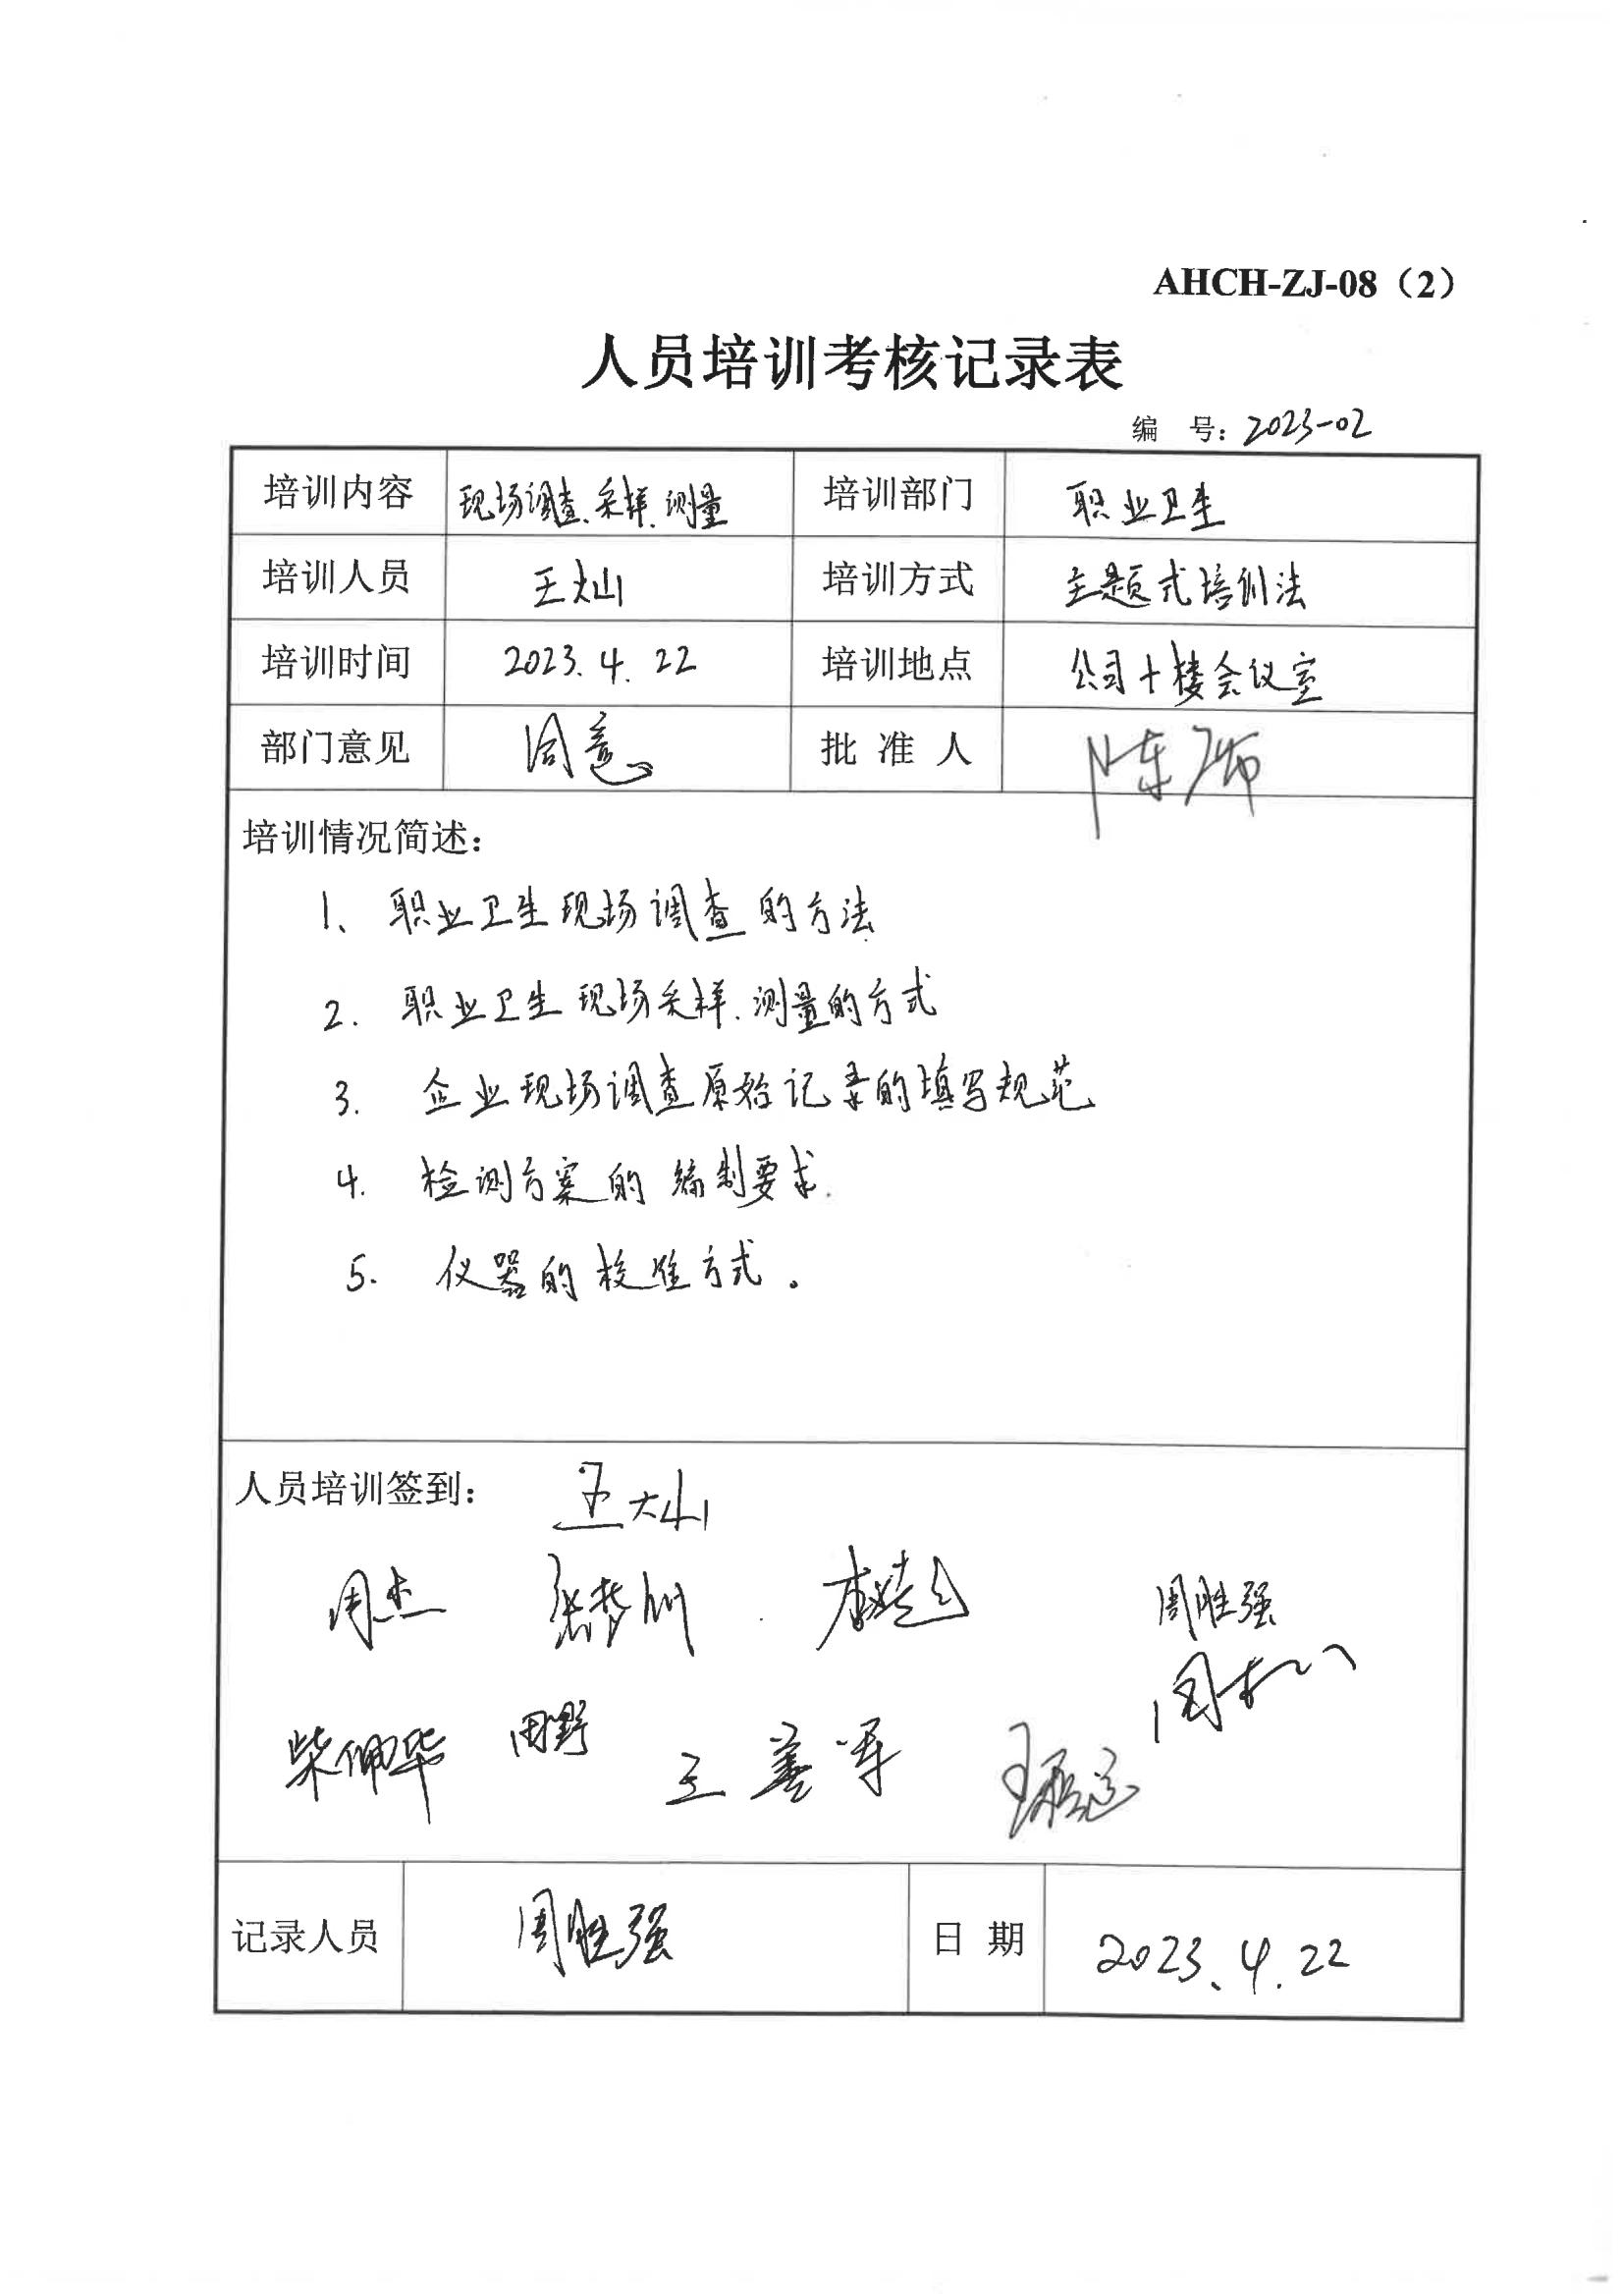 AHCH-ZJ-08（2）
人员培训考核记录表
编 号：2023-02
培训内容 现场调查、采样、测量 培训部门 职业卫生
培训人员 王灿 培训方式 主题式培训法
培训时间 2023.4.22 培训地点 公司十楼会议室
部门意见 同意 批 准 人 陈
培训情况简述：
1、职业卫生现场调查的方法
2. 职业卫生现场采样、测量的方式
3. 企业现场调查原始记录的填写规范
4. 检测方案的编制要求.
5. 仪器的校准方式。
人员培训签到： 王灿
周杰 张梦川 周胜强
柴佩华 田野 王善军
记录人员 周胜强 日 期 2023.4.22